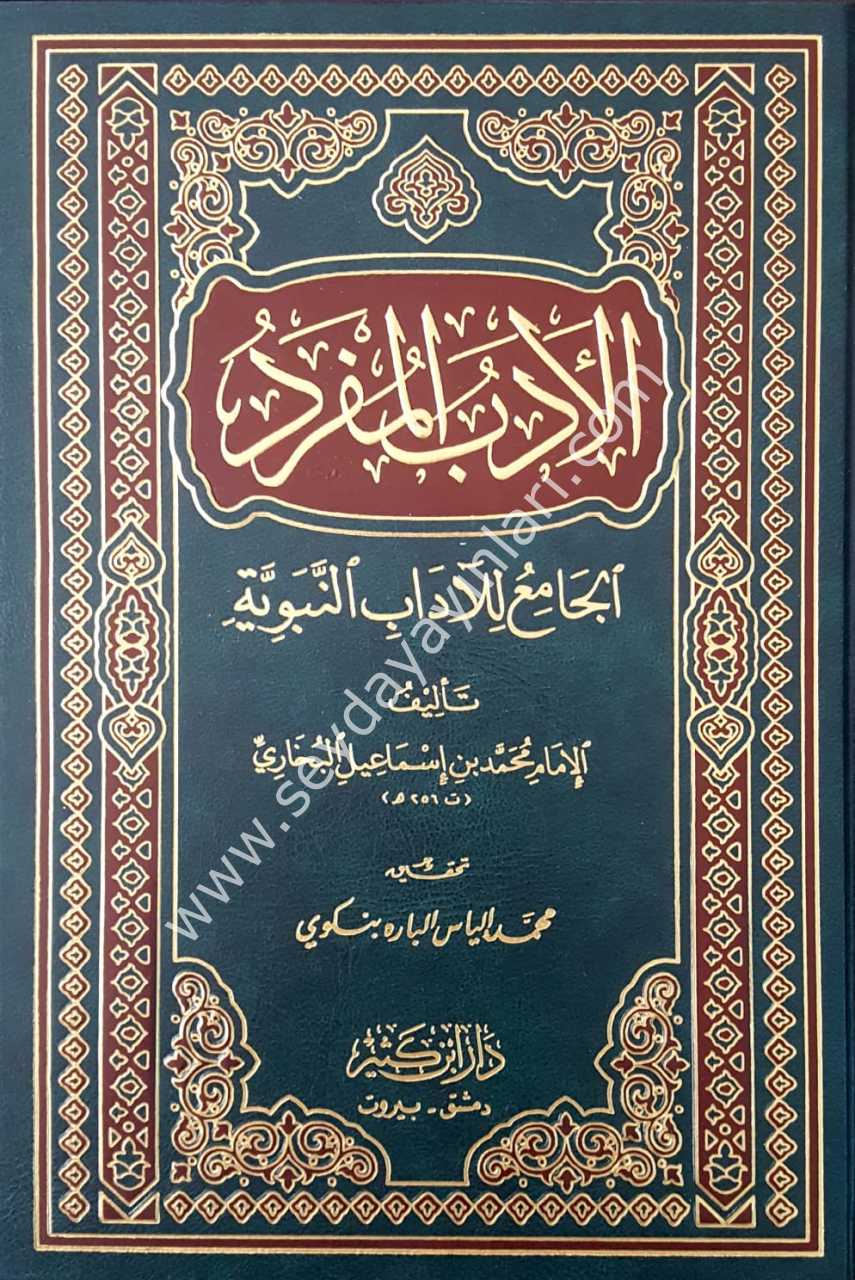 الأَدَبُ المُفرَدُ
الجَامِعُ لِلآدَابِ النَّبَوِيَّةِ
تَأليفُ
الإِمَامِ مُحَمَّد بن إِسْمَاعِيل البُخَارِيِّ
(ت ٢٥٦ هـ)
تحقيق
محمد إلياس الباره بنكوي
دَار ابْن كَثير
دمشق - بيروت
www.seydayayinlari.com